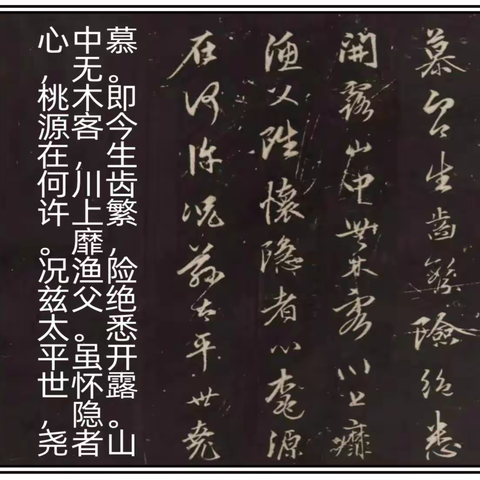 慕即今生齒繁險絕悉
開露山中無木客川上靡
漁父雖懷隱者心桃源
在何許況茲太平世堯
慕。即今生齿繁，险绝悉开露。山
中无木客，川上靡渔父。虽怀隐者
心，桃源在何许。况兹太平世，尧